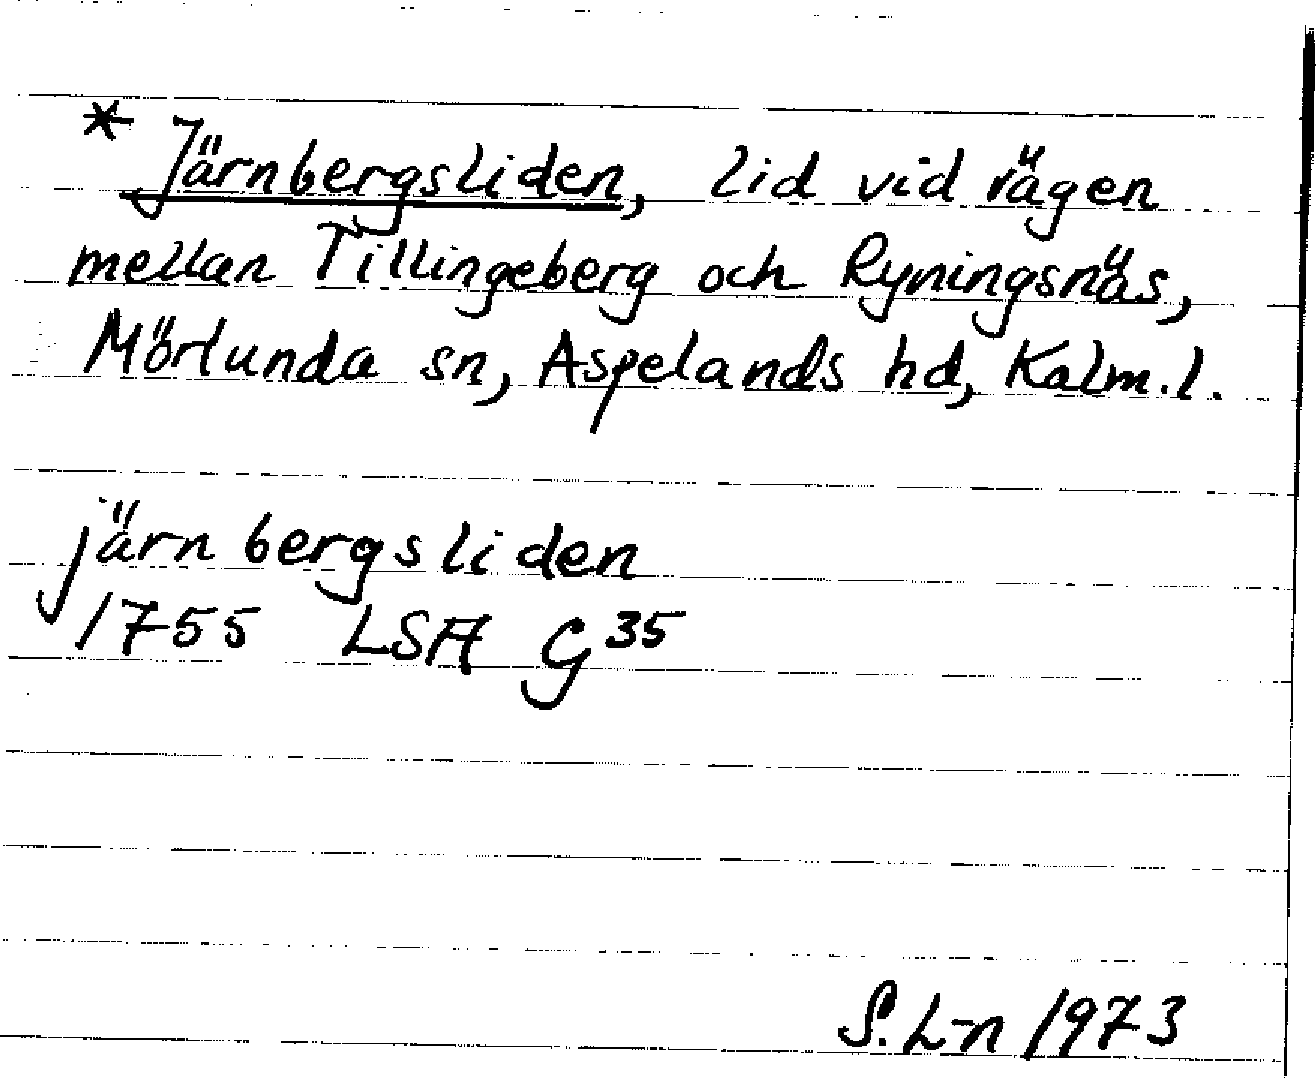 * Järnbergsliden, lid vid vägen
mellan Tillingeberg och Ryningsnäs,
Mörlunda sn, Aspelands hd, Kalm.l.
järnbergsliden
1755 LSA G35
S.L-n 1973